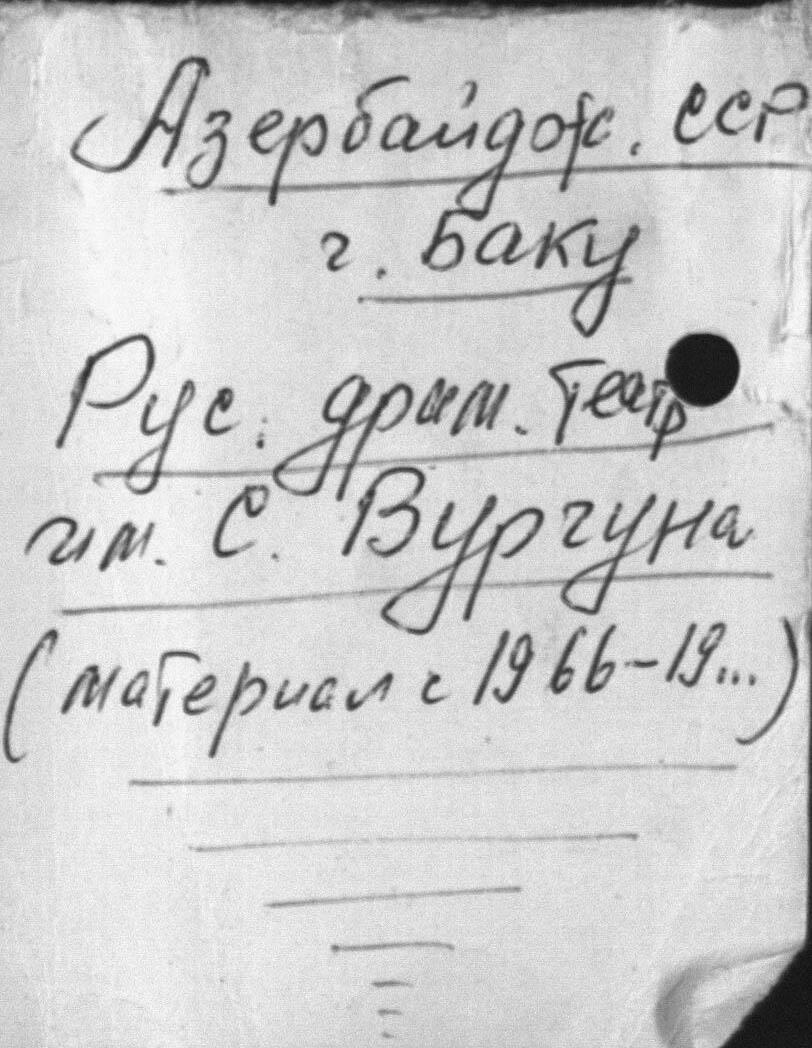 Азербайдж. ССР
г. Баку
Рус. драм. театр
им. С. Вургуна
(материал с 1966-19...)